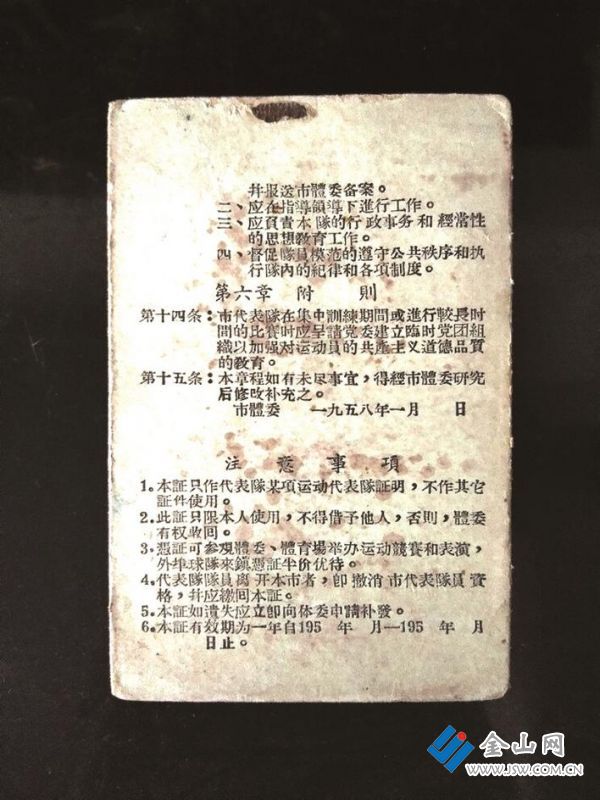 并报送市體委备案。
二、应在指導領導下進行工作。
三、应負責本隊的行政事务和經常性
的思想教育工作。
四、督促隊員模范的遵守公共秩序和执
行隊內的紀律和各項制度。
第六章 附 則
第十四条：市代表隊在集中訓練期間或進行較長时
間的比賽时应呈請党委建立臨时党团組
織以加强对运动員的共產主义道德品質
的教育。
第十五条：本章程如有未尽事宜，得經市體委研究
后修改补充之。
市體委 一九五八年一月 日
注意事項
1。本証只作代表隊某項运动代表隊証明，不作其它
証件使用。
2。此証只限本人使用，不得借予他人，否則，體委
有权收回。
3。憑証可参观體委、體育場举办运动競賽和表演，
外埠球隊來鎮憑証半价优待。
4。代表隊隊員离开本市者，卽撤消市代表隊員資
格，并应繳回本証。
5。本証如遺失应立卽向体委申請补發。
6。本証有效期为一年自195 年 月—195 年 月
日止。
金山网
WWW.JSW.COM.CN